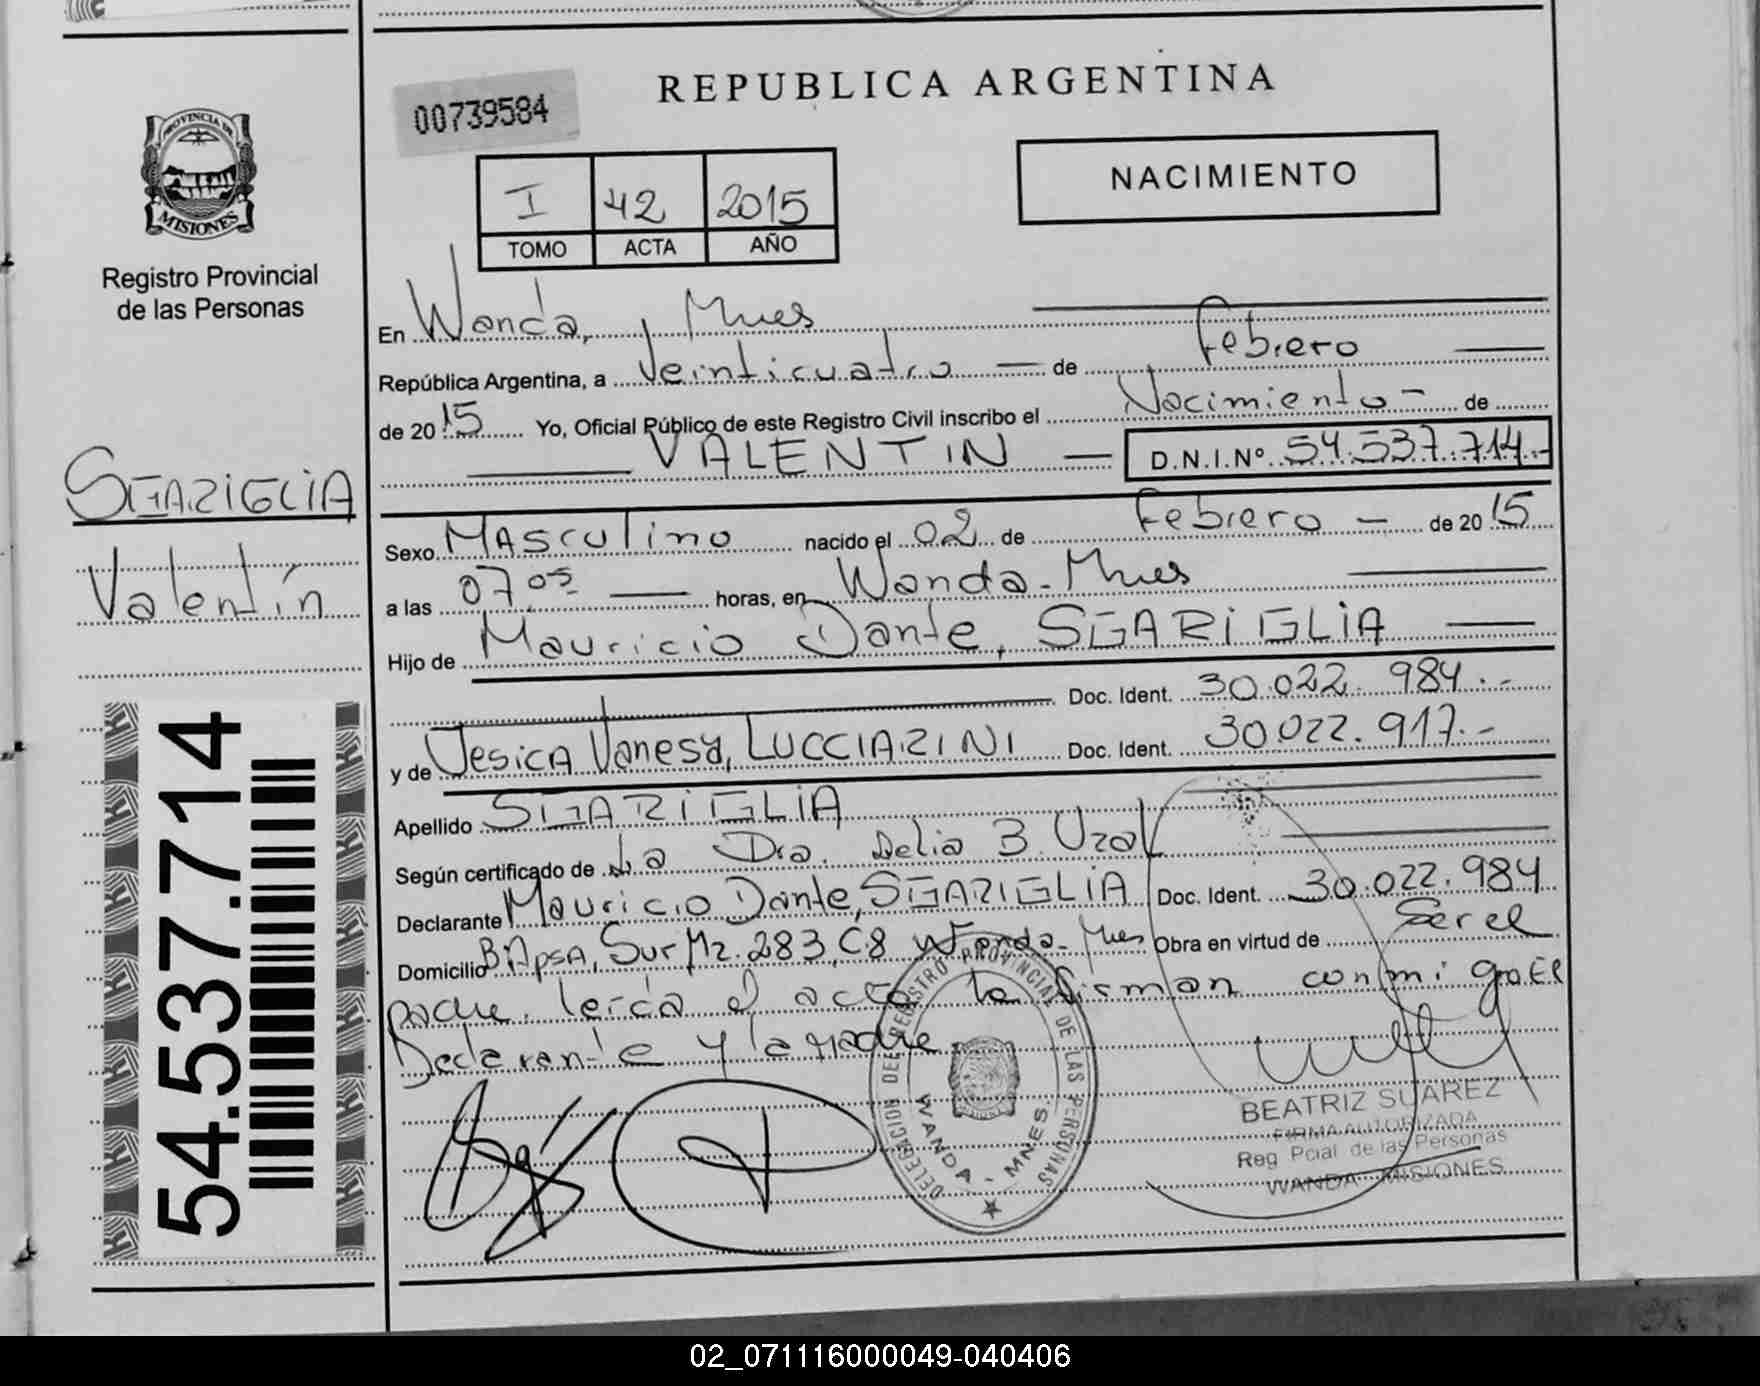 REPUBLICA ARGENTINA
00739584
NACIMIENTO
I 42 2015
TOMO ACTA AÑO
PROVINCIA DE
MISIONES
Registro Provincial
de las Personas
En Wanda, Mnes
República Argentina, a Veinticuatro — de Febrero —
de 2015 Yo, Oficial Público de este Registro Civil inscribo el Nacimiento - de
VALENTIN — D.N.I.Nº 54.537.714.-
SGARIGLIA
Valentín
Sexo Masculino nacido el 02 de Febrero - de 2015
a las 07 05 — horas, en Wanda - Mnes
Hijo de Mauricio Dante, SGARIGLIA —
Doc. Ident. 30.022.984.-
y de Jesica Vanesa, LUCCIARINI Doc. Ident. 30.022.917.-
Apellido SGARIGLIA
Según certificado de La Dra. Delia B. Uzal
Declarante Mauricio Dante, SGARIGLIA Doc. Ident. 30.022.984
Domicilio Bº Apsa, Sur Mz. 283, C8 Wanda - Mnes Obra en virtud de Ser el
padre. leída el acta la firman conmigo El
Declarante y la madre
54.537.714
DELEGACION DE REGISTRO PROVINCIAL DE LAS PERSONAS
WANDA - MNES.
BEATRIZ SUAREZ
FIRMA AUTORIZADA
Reg Pcial de las Personas
WANDA - MISIONES
02_071116000049-040406